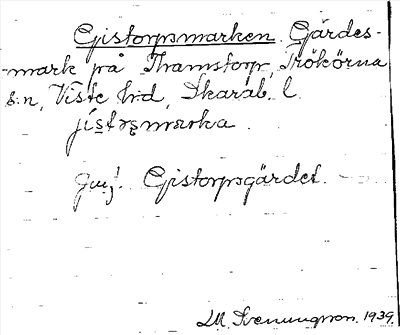 Gistorpsmarken. Gärdes-
mark på Thamstorp, Trökörna
s:n, Viste hd, Skarab. l.
jistrsmarka.
Jmf. Gistorpsgärdet.
LM. Svenungsson. 1939.